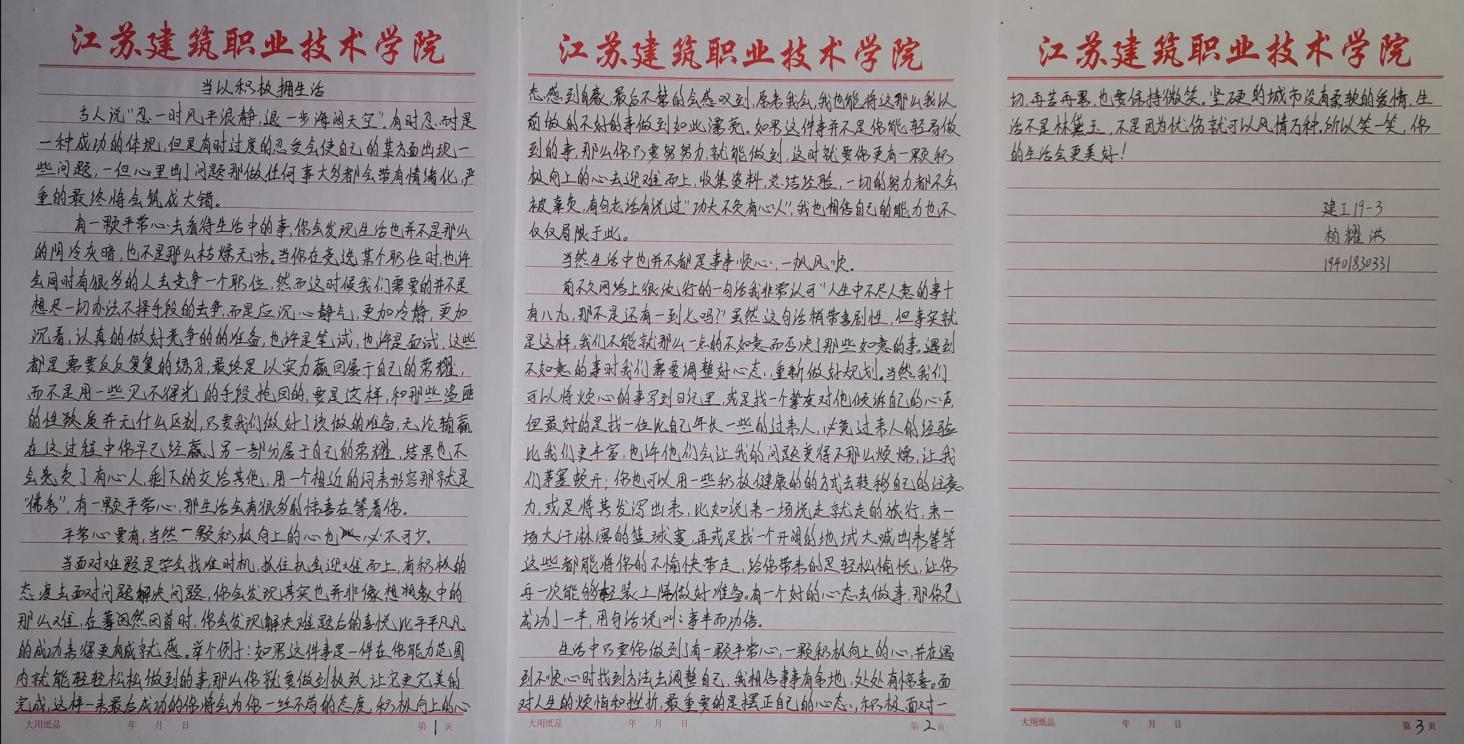 江苏建筑职业技术学院
当以积极拥生活
古人说“忍一时风平浪静,退一步海阔天空”。有时忍耐是
一种成功的体现,但是有时过度的忍受会使自己的某方面出现一
些问题,一但心里出了问题那做任何事大多都会带有情绪化,严
重的最终将会筑成大错。
有一颗平常心去看待生活中的事,你会发现生活也并不是那么
的阴冷灰暗,也不是那么枯燥无味。当你在竞选某个职位时,也许
会同时有很多的人去竞争一个职位,然而这时候我们需要的并不是
想尽一切办法不择手段的去争,而是应沉心静气,更加冷静,更加
沉着,认真的做好竞争的的准备,也许是笔试,也许是面试,这些
都是需要反反复复的练习,最终是以实力赢回属于自己的荣耀,
而不是用一些见不得光的手段抢回的,要是这样,和那些盗匪
的性质并无什么区别,只要我们做好了该做的准备,无论输赢
在这过程中你早已经赢了另一部分属于自己的荣耀,结果也不
会亏负了有心人,剩下的交给其他,用一个相近的词来形容那就是
“佛系”,有一颗平常心,那生活会有很多的惊喜在等着你。
平常心要有,当然一颗积极向上的心也必不可少。
当面对难题是学会找准时机,抓住机会迎难而上,有积极的
态度去面对问题解决问题,你会发现其实也并非像想想象中的
那么难,在蓦闵然回首时,你会发现解决难题后的喜悦,比平平凡凡
的成功来得更有成就感。举个例子:如果这件事是一件在你能力范围
内就能轻轻松松做到的事,那么你就要做到极致,让它更完美的
完成,这样一来最后成功的你将会为你一丝不苟的态度,积极向上的心
大用纸品 年 月 日 第1页
江苏建筑职业技术学院
态感到自豪,最后不禁的会感叹到,原来我会,我也能将这那么我以
前做的不好的事做到如此漂亮。如果这件事并不是你能轻易做
到的事,那么你只要努努力就能做到,这时就要你更有一颗积
极向上的心去迎难而上,收集资料,总结经验,一切的努力都不会
被辜负,有句老话有说过“功夫不负有心人”,我也相信自己的能力也不
仅仅局限于此。
当然生活中也并不都是事事顺心,一帆风顺。
前不久网络上很流行的一句话我非常认可“人生中不尽人意的事十
有八九,那不是还有一到七吗?”虽然这句话稍带喜剧性,但事实就
是这样,我们不能就那么一点的不如意而否决了那些如意的事。遇到
不如意的事时我们需要调整好心态,重新做好规划。当然,我们
可以将烦心的事写到日记里,或是找一个挚友对他倾诉自己的心声
但最好的是找一位比自己年长一些的过来人,必竟过来人的经验
比我们更丰富,也许他们会让我的问题变得不那么烦燥,让我
们茅塞顿开;你也可以用一些积极健康的的方式去转移自己的注意
力,或是将其发泻出来,比如说来一场说走就走的旅行,来一
场大汗淋漓的篮球赛,再或是找一个开阔的地域大喊出来等等
这些都能将你的不愉快带走,给你带来的是轻松愉悦,让你
再一次能够轻装上阵做好准备。有一个好的心态去做事,那你已
成功了一半,用句话说叫:事半而功倍。
生活中只要你做到了有一颗平常心,一颗积极向上的心,并在遇
到不顺心时找到方法去调整自己,我相信事事有余地,处处有惊喜。面
对人生的烦恼和挫折,最重要的是摆正自己的心态,积极面对一
大用纸品 年 月 日 第2页
江苏建筑职业技术学院
切,再苦再累,也要保持微笑。坚硬的城市没有柔软的爱情,生
活不是林黛玉,不是因为忧伤就可以风情万种,所以笑一笑,你
的生活会更美好!
建工19-3
杨耀洪
19401830331
大用纸品 年 月 日 第3页